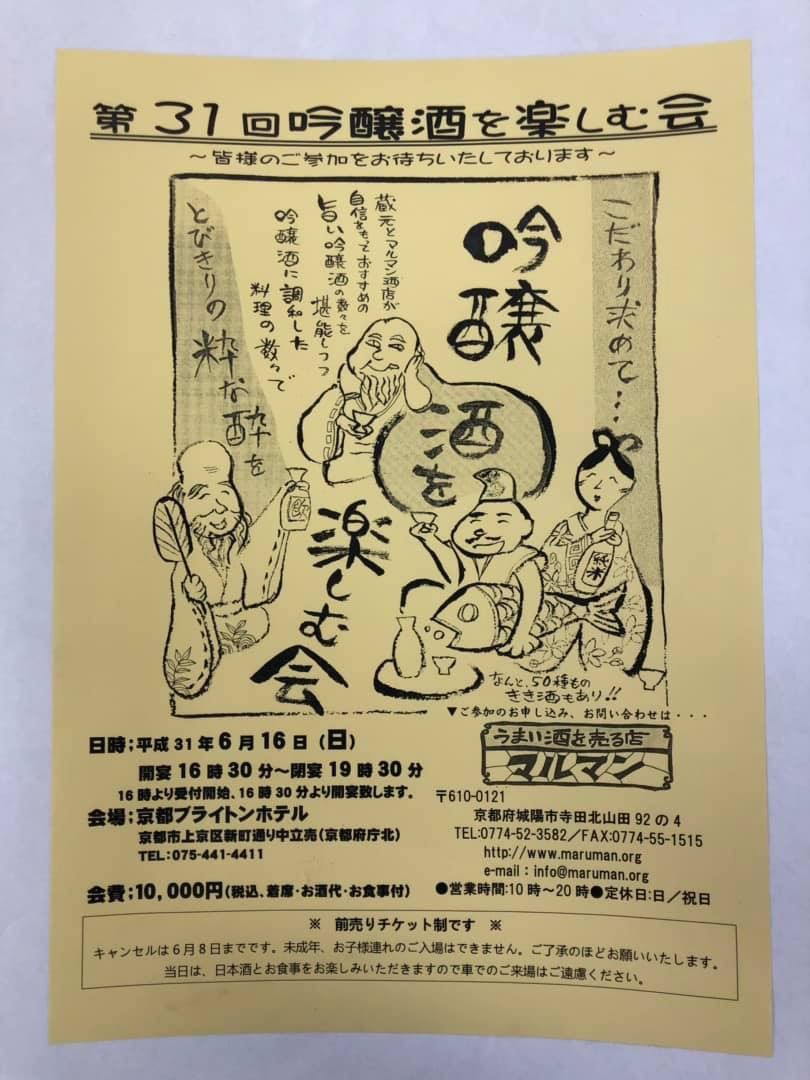 第31回吟醸酒を楽しむ会
～皆様のご参加をお待ちいたしております～
こだわり求めて…
吟醸
酒を
楽しむ会
蔵元とマルマン酒店が
自信をもっておすすめの
旨い吟醸酒の数々を
堪能しつつ
吟醸酒に調和した
料理の数々で
とびきりの粋な酔を
飲
純米
なんと、50種もの
きき酒もあり!!
▼ご参加のお申し込み、お問い合わせは・・・
日時;平成31年6月16日(日)
開宴16時30分～閉宴19時30分
16時より受付開始、16時30分より開宴致します。
会場;京都ブライトンホテル
京都市上京区新町通り中立売(京都府庁北)
TEL:075-441-4411
会費;10,000円(税込、着席・お酒代・お食事付)
うまい酒を売る店
マルマン
〒610-0121
京都府城陽市寺田北山田92の4
TEL:0774-52-3582/FAX:0774-55-1515
http://www.maruman.org
e-mail:info@maruman.org
●営業時間:10時～20時●定休日:日/祝日
※ 前売りチケット制です ※
キャンセルは6月8日までです。未成年、お子様連れのご入場はできません。ご了承のほどお願いいたします。
当日は、日本酒とお食事をお楽しみいただきますので車でのご来場はご遠慮ください。